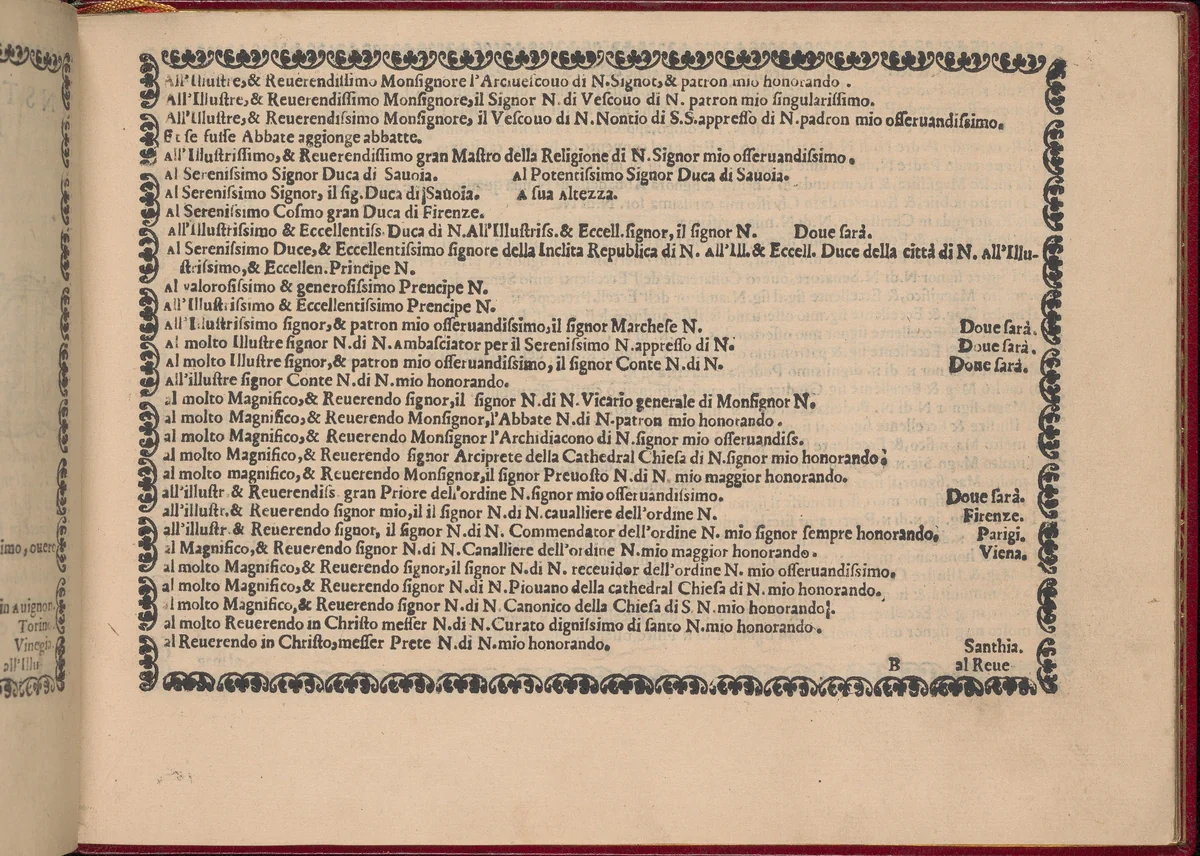 All'Illustre,& Reuerendissimo Monsignore l'Arciuescouo di N.Signor,& patron mio honorando .
All'Illustre,& Reuerendissimo Monsignore,il Signor N. di Vescouo di N. patron mio singularissimo.
All'Illustre,& Reuerendissimo Monsignore, il Vescouo di N.Nontio di S.S.appresso di N.padron mio osseruandissimo.
Et se fusse Abbate aggionge abbatte.
All'Illustrissimo,& Reuerendissimo gran Mastro della Religione di N.Signor mio osseruandissimo .
Al Serenissimo Signor Duca di Sauoia. Al Potentissimo Signor Duca di Sauoia.
Al Serenissimo Signor, il sig. Duca di Sauoia. A sua Altezza.
Al Serenissimo Cosmo gran Duca di Firenze.
All'illustrissimo & Eccellentiss. Duca di N.All'Illustriss. & Eccell.signor, il signor N. Doue sarà.
Al Serenissimo Duce,& Eccellentissimo signore della Inclita Republica di N. All'Ill.& Eccell. Duce della città di N. All'Illu-
strissimo,& Eccellen.Principe N.
Al valorosissimo & generosissimo Prencipe N.
All'Illustrissimo & Eccellentissimo Prencipe N.
All'Illustrissimo signor,& patron mio osseruandissimo,il signor Marchese N. Doue sarà.
Al molto Illustre signor N.di N.Ambasciator per il Serenissimo N.appresso di N. Doue sarà.
Al molto Illustre signor,& patron mio osseruandissimo, il signor Conte N.di N. Doue sarà.
All'illustre signor Conte N.di N.mio honorando.
al molto Magnifico,& Reuerendo signor,il signor N.di N.Vicario generale di Monsignor N.
al molto Magnifico,& Reuerendo Monsignor,l'Abbate N.di N.patron mio honorando .
al molto Magnifico,& Reuerendo Monsignor l'Archidiacono di N.signor mio osseruandiss.
al molto Magnifico,& Reuerendo signor Arciprete della Cathedral Chiesa di N.signor mio honorando.
al molto magnifico,& Reuerendo Monsignor,il signor Preuosto N.di N. mio maggior honorando.
all'illustr.& Reuerendiss gran Priore dell'ordine N.signor mio osseruandissimo. Doue sarà.
all'illustr.& Reuerendo signor mio,il il signor N.di N.cauualliere dell'ordine N. Firenze.
all'illustr.& Reuerendo signor, il signor N.di N. Commendator dell'ordine N. mio signor sempre honorando. Parigi.
al Magnifico,& Reuerendo signor N.di N.Canalliere dell'ordine N.mio maggior honorando. Viena.
al molto Magnifico,& Reuerendo signor,il signor N.di N. receuidor dell'ordine N. mio osseruandissimo.
al molto Magnifico,& Reuerendo signor N.di N.Piouano della cathedral Chiesa di N. mio honorando.
al molto Magnifico,& Reuerendo signor N.di N.Canonico della Chiesa di S N.mio honorando.
al molto Reuerendo in Christo messer N.di N.Curato dignissimo di santo N.mio honorando.
al Reuerendo in Christo,messer Prete N.di N.mio honorando. Santhia.
B al Reue
imo, ouere
in Auignon.
Torino.
Vinegia.
all'Illu